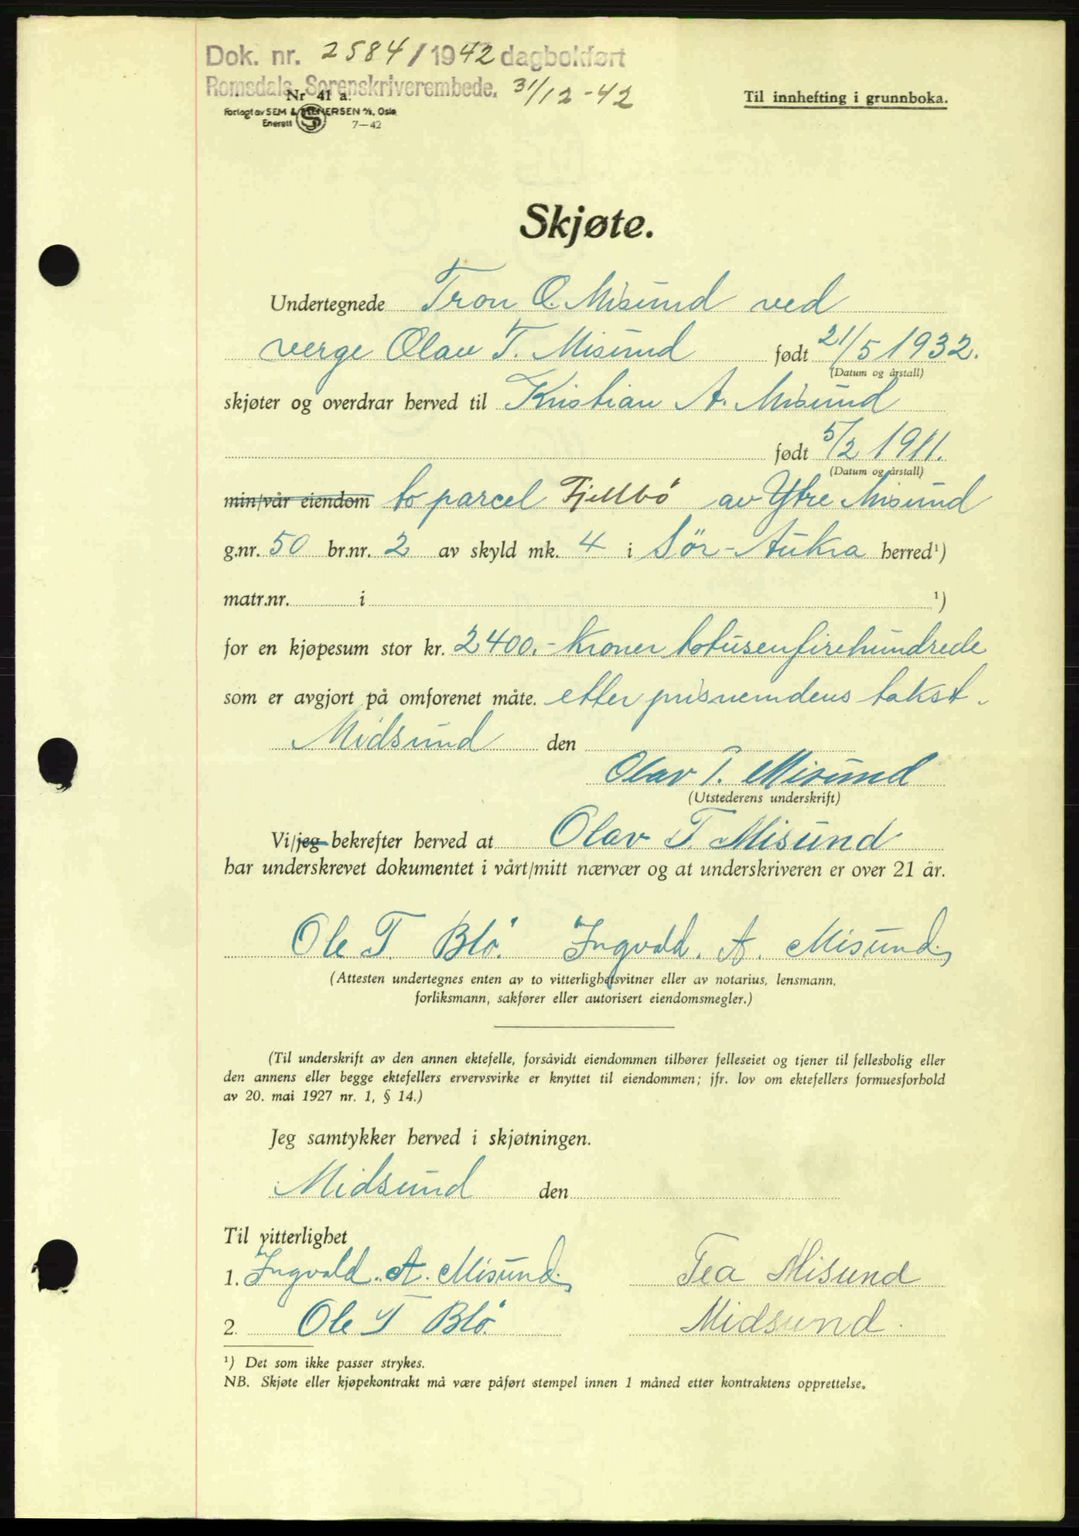 Dok. nr. 2584/1942 dagbokført
Romsdals Sorenskriverembede. 31/12-42
Nr 41 a.
Forlagt av SEM & STENERSEN A/S, Oslo
Enerett 7-42
Til innhefting i grunnboka.
Skjøte.
Undertegnede Tron O. Misund ved
verge Olav T. Misund født 21/5 1932.
(Datum og årstall)
skjøter og overdrar herved til Kristian A. Misund
født 5/2 1911.
(Datum og årstall)
min/vår eiendom to parcel Fjellbø av Ytre Misund
g.nr. 50 br.nr. 2 av skyld mk. 4 i Sør-Aukra herred¹)
matr.nr. i ¹)
for en kjøpesum stor kr. 2400.- kroner totusenfirehundrede
som er avgjort på omforenet måte. etter prisnemdens takst.
Midsund den
Olav T. Misund
(Utstederens underskrift)
Vi/jeg bekrefter herved at Olav T. Misund
har underskrevet dokumentet i vårt/mitt nærvær og at underskriveren er over 21 år.
Ole T Blø. Ingvald. A. Misund.
(Attesten undertegnes enten av to vitterlighetsvitner eller av notarius, lensmann,
forliksmann, sakfører eller autorisert eiendomsmegler.)
(Til underskrift av den annen ektefelle, forsåvidt eiendommen tilhører felleseiet og tjener til fellesbolig eller
den annens eller begge ektefellers ervervsvirke er knyttet til eiendommen; jfr. lov om ektefellers formuesforhold
av 20. mai 1927 nr. 1, § 14.)
Jeg samtykker herved i skjøtningen.
Midsund den
Til vitterlighet
1. Ingvald. A. Misund. Tea Misund
2. Ole T Blø. Midsund.
¹) Det som ikke passer strykes.
NB. Skjøte eller kjøpekontrakt må være påført stempel innen 1 måned etter kontraktens opprettelse.